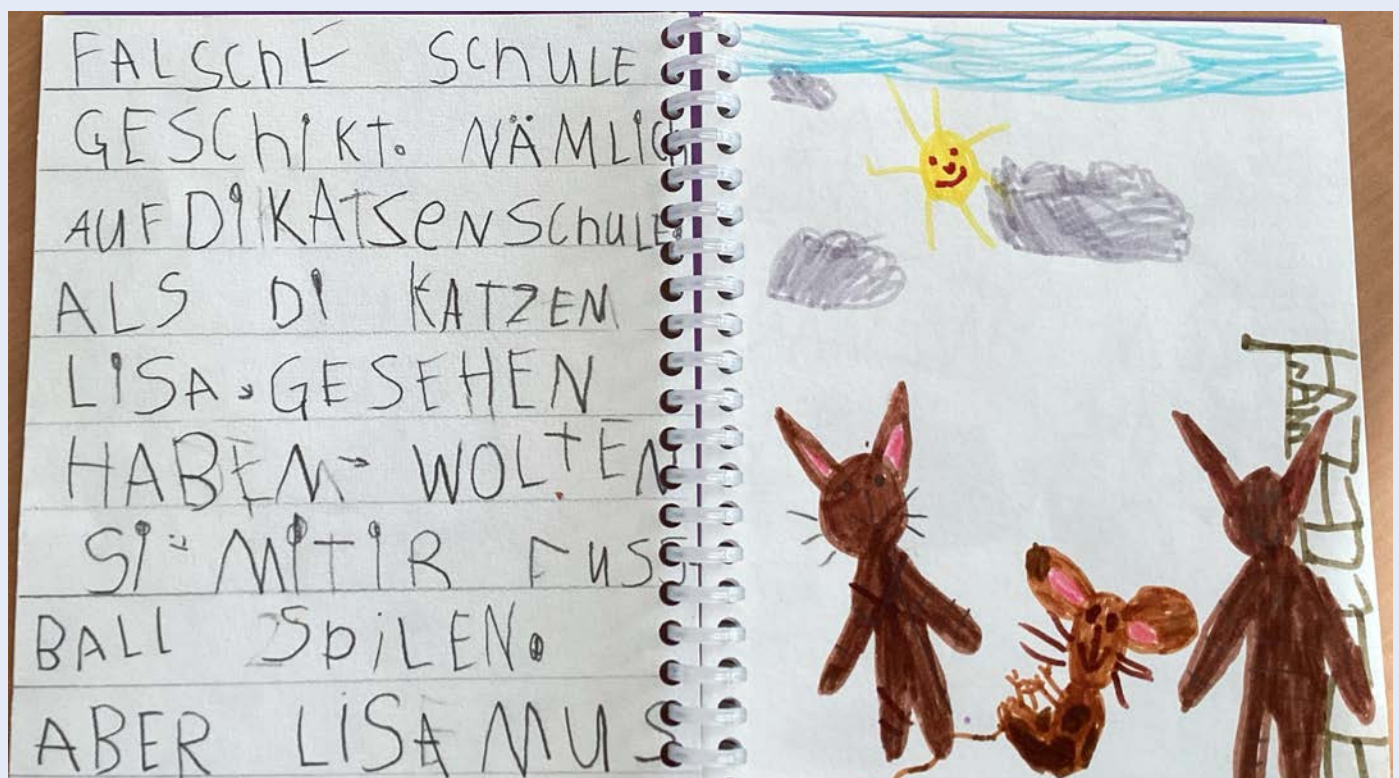 FALSChE SChULE
GESChiKT. NÄMLIC
AUF Di KATSeN SChULE
ALS Di KATZEN
LiSA, GESEHEN
HABEN, WOLTEN
Si MiTiR FUSS
BALL SpiLEN.
ABER LiSA MUS